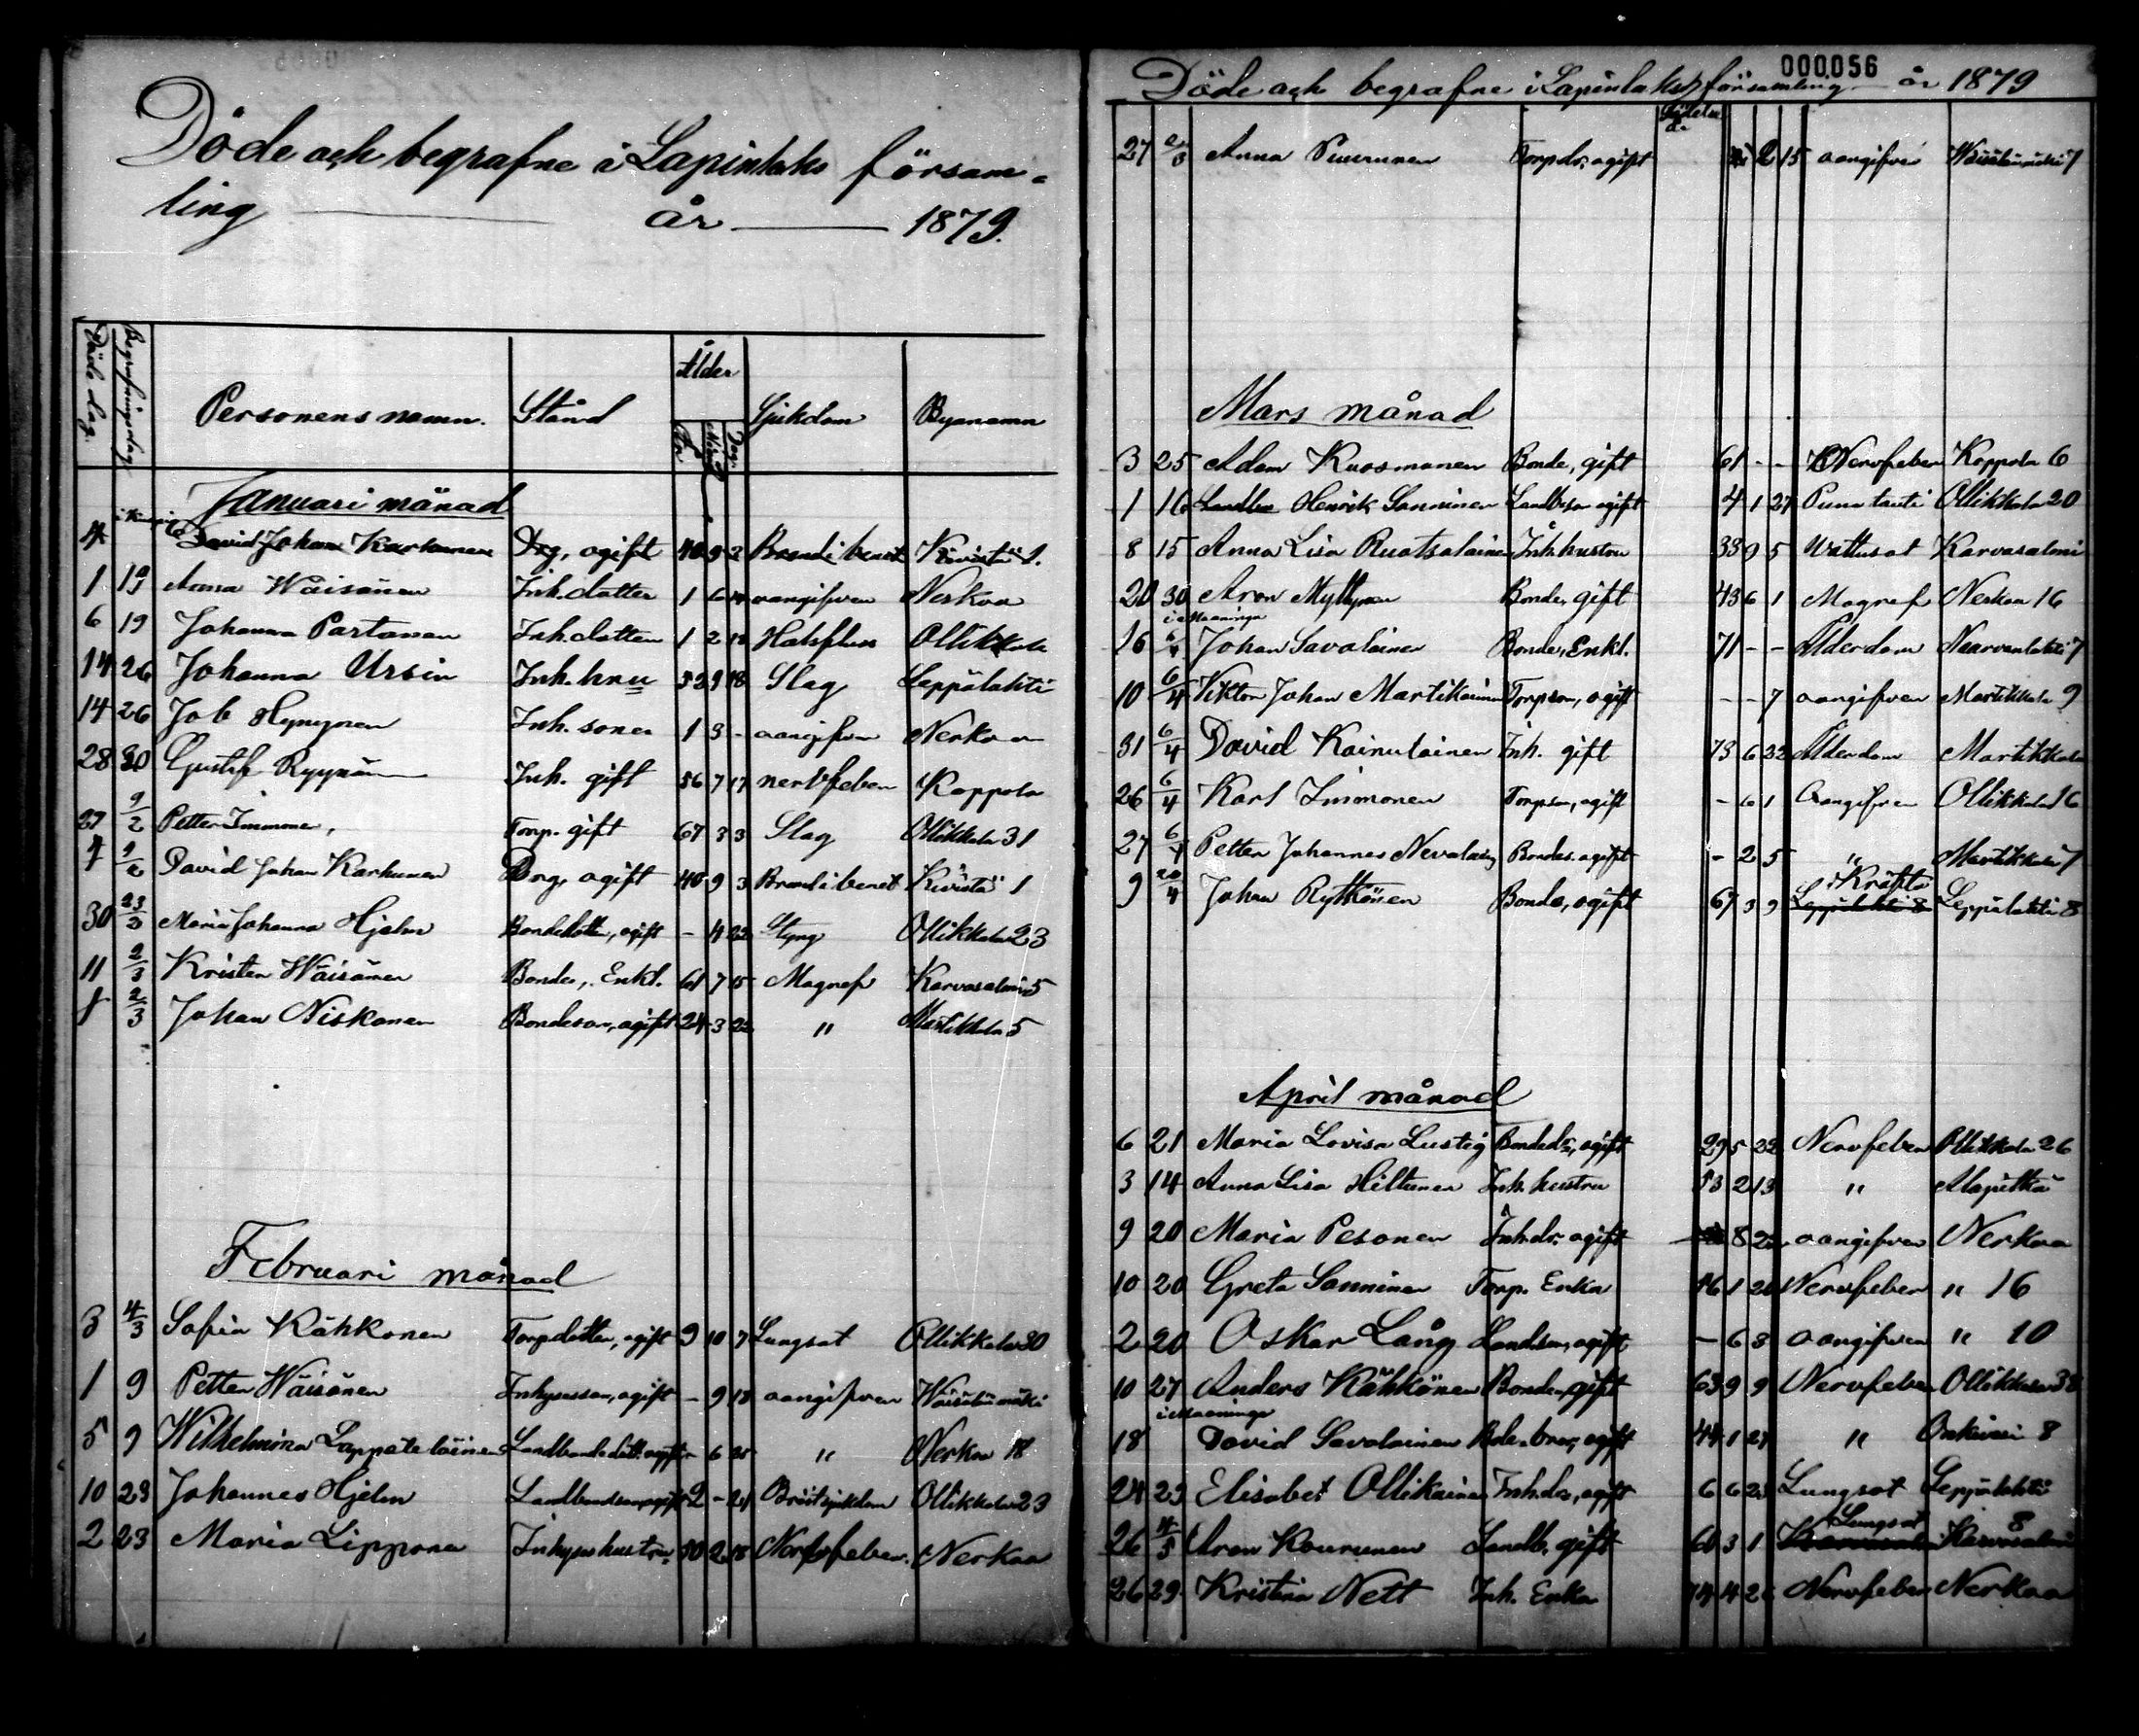 Döde och begrafne i Lapinlaks försam-
ling — år — 1879.
Döde dag. Begrafningsdag Personens namn. Stånd Ålder År Mån Dag Sjukdom Bynamn
Januari månad
4 David Johan Karhunen Drg, ogift 40 9 3 Brand i benet Kivistö 1.
1 19 Anna Wäisänen Inh. dotter 1 6 oangifven Nerkoo
6 19 Johanna Partanen Inh. dotter 1 2 Halsfluss Ollikkala
14 26 Johanna Ursin Inh. hru 52 9 18 Slag Leppälahti
14 26 Job Hyvynen Inh. soner 1 3 - oangifven Nerkoo
28 30 Gustaf Ryynän Inh. gift 56 7 17 nervfeber Koppola
27 9/2 Petter Immone, Torp. gift 67 3 3 Slag Ollikkala 31
4 9/2 David Johan Karhunen Drg, ogift 40 9 3 Brand i benet Kivistö 1
30 23/3 Maria Johanna Hjelm Bondedotter, ogift - 4 22 Styng Ollikkala 23
11 2/3 Krister Wäisänen Bonde, Enkl. 61 7 15 Magref Karvasalmi 5
1 2/3 Johan Niskanen Bondeson, ogift 24 3 22 " Martikkala 5
Februari månad
3 4/3 Sofia Kähkonen Torpdotter, ogift 9 10 7 Lungsot Ollikkala 30
1 9 Petter Wäisänen Inhysesson, ogift - 9 18 oangifven Wäisälänmäki
5 9 Wilhelmina Lappeteläinen Landbondedott. ogift - 6 25 " Nerkoo 18
10 23 Johannes Hjelm Landbondson, ogift 2 - 24 Bröstsjukdom Ollikkala 23
2 23 Maria Lippone Inhyses hustru 50 2 18 Nervfeber. Nerkoo
000056
Döde och begrafne i Lapinlaks församling år 1879
27 2/3 Anna Puurunen Torpdr, ogift 2 15 oangifven Wäisälänmäki 7
Mars månad
3 25 Adam Kuosmanen Bonde, gift 61 - - Nervfeber Koppola 6
1 16 Henrik Sonninen Landbson ogift 4 1 27 Puna tauti Ollikkala 20
8 15 Anna Lisa Ruotsalainen Inh. hustru 33 9 5 Wattusot Karvasalmi
20 30 Aron Myllynen Bonde, gift 43 6 1 Magref Nerkoo 16
i Maaninga
16 6/4 Johan Savolainen Bonde, Enkl. 71 - - Ålderdom Naarvanlahti 7
10 6/4 Viktor Johan Martikainen Torpson, ogift - - 7 oangifven Martikkala 9
31 6/4 David Kainulainen Inh. gift 73 6 22 Ålderdom Martikkala
26 6/4 Karl Immonen Torpson, ogift - 6 1 Oangifven Ollikkala 16
27 6/4 Petter Johannes Nevalain Bondes. ogift - 2 5 " Martikkala 7
9 20/4 Johan Rytkönen Bonde, ogift 67 3 9 Kräfta Leppälahti 8
April månad
6 21 Maria Lovisa Lustig Bondedr, ogift 29 5 22 Nervfeber Ollikkala 26
3 14 Anna Lisa Hiltunen Inh. hustru 53 2 13 " Alapitkä
9 20 Maria Pesonen Inh. dr. ogift 8 22 oangifven Nerkoo
10 20 Greta Sonninen Torp. Enka 76 1 20 Nervfeber " 16
2 20 Oskar Lång Landson, ogift - 6 3 oangifven " 10
10 27 Anders Kähkönen Bonde, gift 63 9 9 Nervfeber Ollikkala 38
i Maaninga
18 David Savolainen Bde. bror, ogift 44 1 27 " Onkivesi 8
24 29 Elisabet Ollikainen Inh. dr, ogift 6 6 23 Lungsot Leppälahti
26 4/5 Aron Kourunen Landb. gift 60 3 1 Lungsot Karvasalmi 8
26 29 Kristina Nett Inh. Enka 74 4 26 Nervfeber Nerkoo